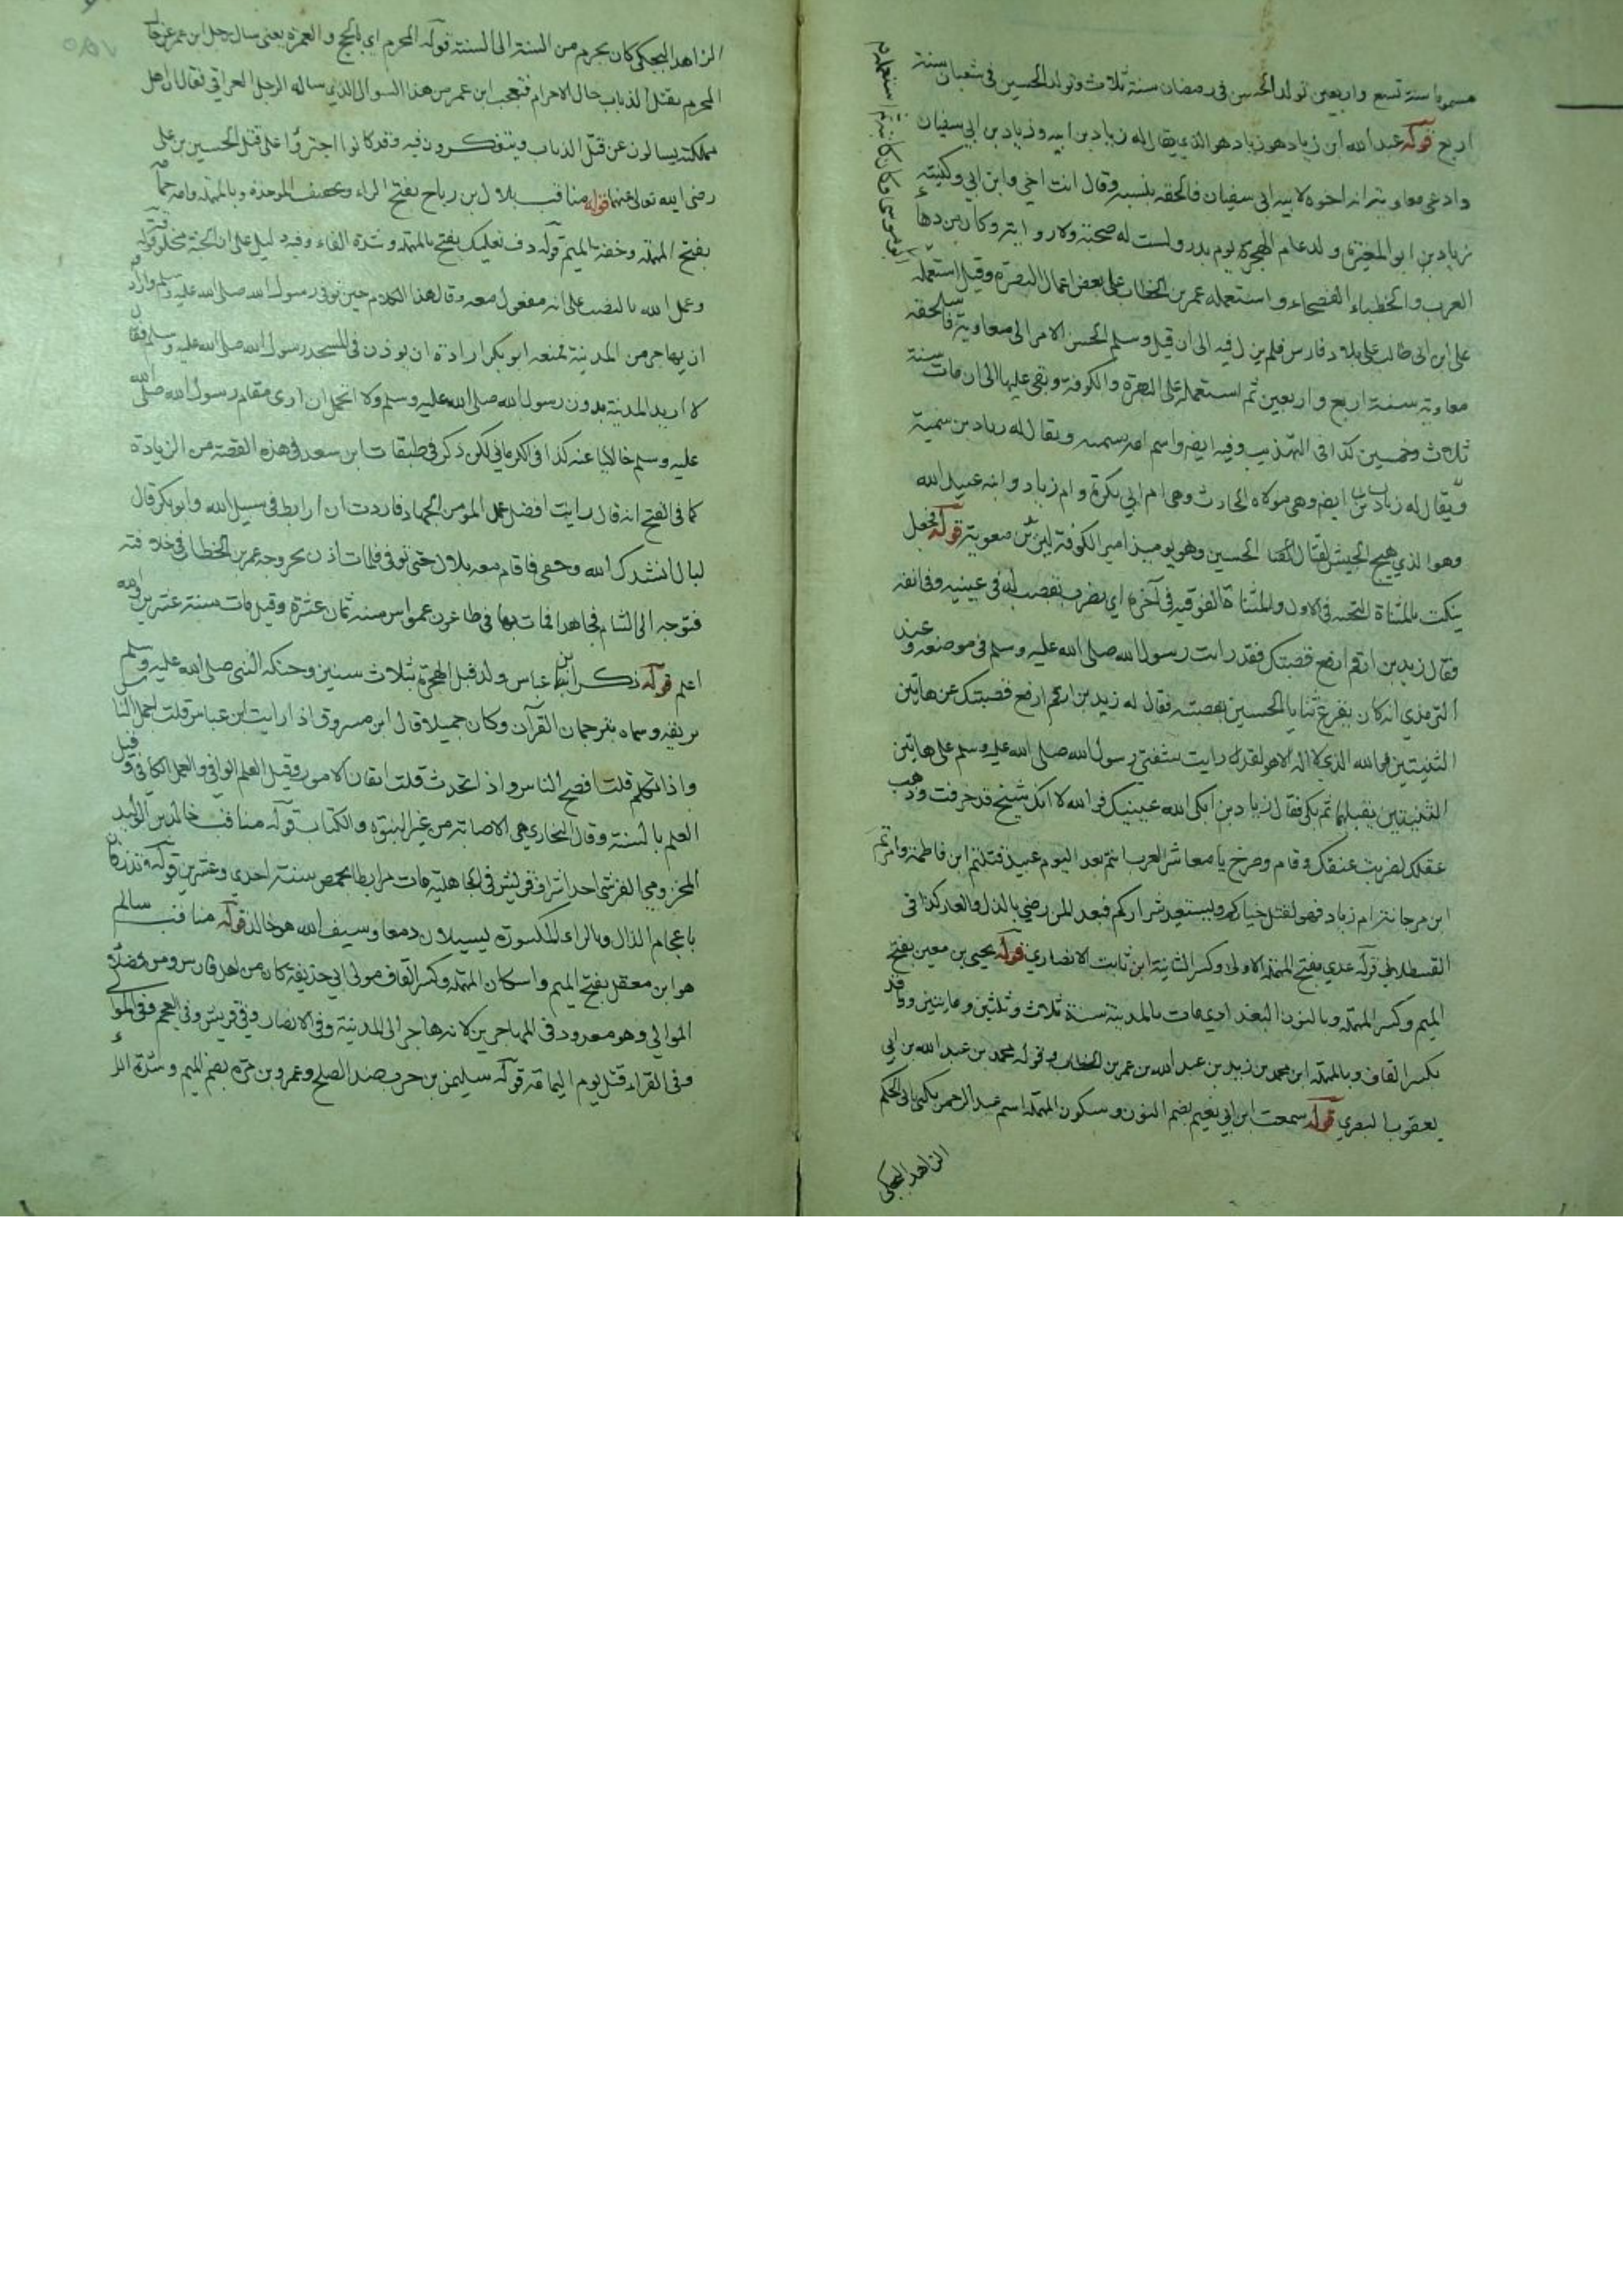 مسموما سنة تسع واربعين تولد الحسن في رمضان سنة ثلاث وتولد الحسين في شعبان سنة
اربع قوله عبد الله ابن زياد هو زياد هو الذي يقال له زياد بن ابيه وزياد بن ابي سفيان
وادعى معاوية انه اخوه لابيه ابي سفيان فالحقه بنسبه وقال انت اخي وابن ابي وكنيته
زياد بن ابو المغيرة ولد عام الهجرة يوم بدر وليست له صحبة ولا رواية وكان من دهاة
العرب والخطباء الفصحاء واستعمله عمر بن الخطاب على بعض اعمال البصرة وقيل استعمله
ابو موسى وكان كاتبه استعمله
على ابن ابي طالب على بلاد فارس فلم يزل فيه الى ان قتل وسلم الحسن الامر الى معاوية فالحقه
معاوية سنة اربع واربعين ثم استعمله على البصرة والكوفة وبقي عليها الى ان مات سنة
ثلاث وخمسين كذا في التهذيب وفيه ايضا واسم امه سمية ويقال له زياد بن سمية
ويقال له زياد بن ايضا وهي مولاة الحارث وهي ام ابي بكرة وام زياد وابنه عبيد الله
وهو الذي هيج الجيش لقتال الحسين وهو يومئذ امير الكوفة ليزيد بن معوية قوله فجعل
ينكت بالمثناة التحتية في الاول والمثناة الفوقية في آخره اي يضرب بقضيب له في عينيه وفي انفه
فقال زيد بن ارقم ارفع قضيبك فقد رايت رسول الله صلى الله عليه وسلم في موضعه وعند
الترمذي انه كان يقرع ثنايا الحسين بقضيبه فقال له زيد بن ارقم ارفع قضيبك عن هاتين
الثنيتين فوالله الذي لا اله الا هو لقد رايت شفتي رسول الله صلى الله عليه وسلم على هاتين
الثنيتين يقبلهما ثم بكى فقال زياد بن ابكى الله عينيك فوالله لا انك شيخ قد خرفت وذهب
عقلك لضربت عنقك وقام وصرخ يا معاشر العرب انتم بعد اليوم عبيد قتلتم ابن فاطمة وامرتم
ابن مرجانة ام زياد فهو لقتل خياركم ويستعبد شراركم فبعد لمن رضي بالذل والعار كذا في
القسطلاني قوله عدي بفتح المهملة الاولى وكسر الثانية ابن ثابت الانصاري قوله يحيى بن معين بفتح
الميم وكسر المهملة وبالنون البغدادي مات بالمدينة سنة ثلاث وثلثين ومايتين وواقد
بكسر القاف وبالمهملة ابن محمد بن زيد بن عبد الله بن عمر بن الخطاب وقوله محمد بن عبد الله بن ابي
يعقوب البصري قوله سمعت ابن ابي نعيم بضم النون وسكون المهملة اسم عبد الرحمن يكنى بابي الحكم
الزاهد البجلي
الزاهد البجلي كان يحرم من السنة الى السنة قوله المحرم اي بالحج والعمرة يعني سال رجل ابن عمر عن حال
المحرم يقتل الذباب حال الاحرام فتعجب ابن عمر من هذا السوال الذي ساله الرجل العراقي فقال ان اهل
مملكته يسالون عن قتل الذباب ويتفكرون فيه وقد كانوا اجترؤا على قتل الحسين بن علي
رضي الله تعالى عنهما قوله مناقب بلال بن رباح بفتح الراء وتخفيف الموحدة وبالمهملة وامه حمامة
بفتح المهملة وخفة الميم قوله دف نعليك بفتح المهملة وشدة الفاء وفيه دليل على ان الجنة مخلوقة قوله
وعمل الله بالنصب على انه مفعول معه وقال هذا الكلام حين توفي رسول الله صلى الله عليه وسلم واراد
ان يهاجر من المدينة فمنعه ابو بكر ارادة ان يوذن في المسجد رسول الله صلى الله عليه وسلم فقال
لا اريد المدينة بدون رسول الله صلى الله عليه وسلم ولا اتحمل ان ارى مقام رسول الله صلى الله
عليه وسلم خاليا عنه كذا في الكرماني لكن ذكر في طبقات ابن سعد في هذه القصة من الزيادة
كما في الفتح انه قال رايت افضل عمل المومن الجهاد فاردت ان ارابط في سبيل الله وابو بكر قال
لبلال انشدك الله وحقي فاقام معه بلال حتى توفي فلما مات اذن بخروجه عمر بن الخطاب في خلافته
فتوجه الى الشام مجاهدا فمات بها في طاعون عمواس سنة ثمان عشرة وقيل مات سنة عشرين والله
اعلم قوله ذكر ابن عباس ولد قبل الهجرة بثلاث سنين وحنكه النبي صلى الله عليه وسلم
بريقه وسماه بترجمان القرآن وكان جميلا قال ابن مسروق اذا رايت ابن عباس قلت اجمل الناس
واذا تكلم قلت افصح الناس واذا تحدث قلت اتقان الامور وقيل العلم الوافي والعمل الكافي وقيل
العلم بالسنة وقال البخاري هي الاصابة من غير النبوة والكتاب قوله مناقب خالد بن الوليد
المخزومي القرشي احد اشراف قريش في الجاهلية مات مرابطا بحمص سنة احدى وعشرين قوله تذرفان
باعجام الذال وبالراء المكسورة يسيلان دمعا وسيف الله هو خالد قوله مناقب سالم
هو ابن معقل بفتح الميم واسكان المهملة وكسر القاف مولى ابي حذيفة كان من اهل فارس ومن فضلاء
الموالي وهو معدود في المهاجرين لانه هاجر الى المدينة وفي الانصار وفي قريش وفي العجم وفي الموالي
وفي القراء قتل يوم اليمامة قوله سليمن بن حرب ضد الصلح وعمرو بن مرة بضم الميم وشدة الراء